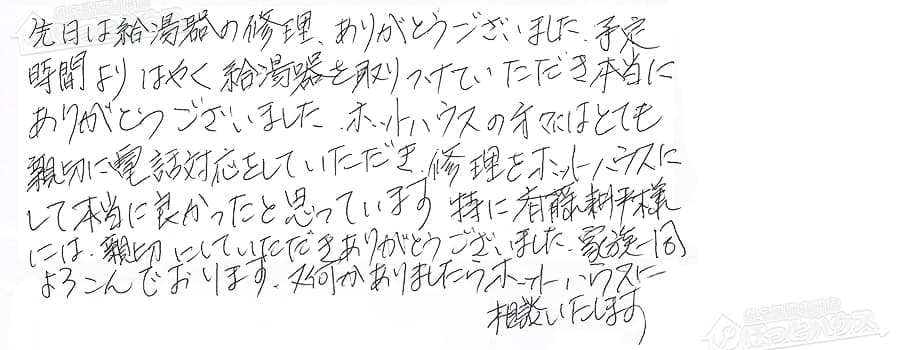 先日は給湯器の修理、ありがとうございました、予定
時間よりはやく給湯器を取りつけていただき本当に
ありがとうございました、ホットハウスの方々にはとても
親切に電話対応をしていただき、修理をホットハウスに
して本当に良かったと思っています 特に斉藤耕平様
には、親切にしていただきありがとうございました、家族一同
よろこんでおります、又何かありましたらホットハウスに
相談いたします
ほっとハウス